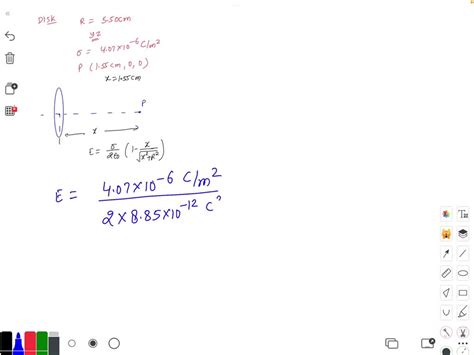 DISK R = 5.50cm
yz
σ = 4.07×10⁻⁶ C/m²
P (1.55cm, 0, 0)
x = 1.55cm
P
x
E = σ/2ε₀ (1 - x/√x²+R²)
E = 4.07×10⁻⁶ C/m²
2 × 8.85×10⁻¹² C²
T